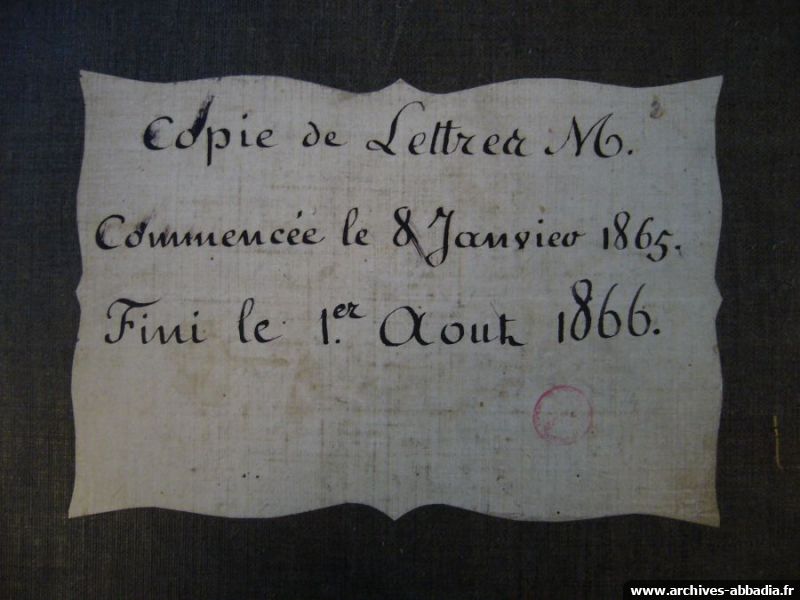 Copie de Lettres M.
Commencée le 8 Janvier 1865.
Fini le 1.er Aout 1866.
www.archives-abbadia.fr